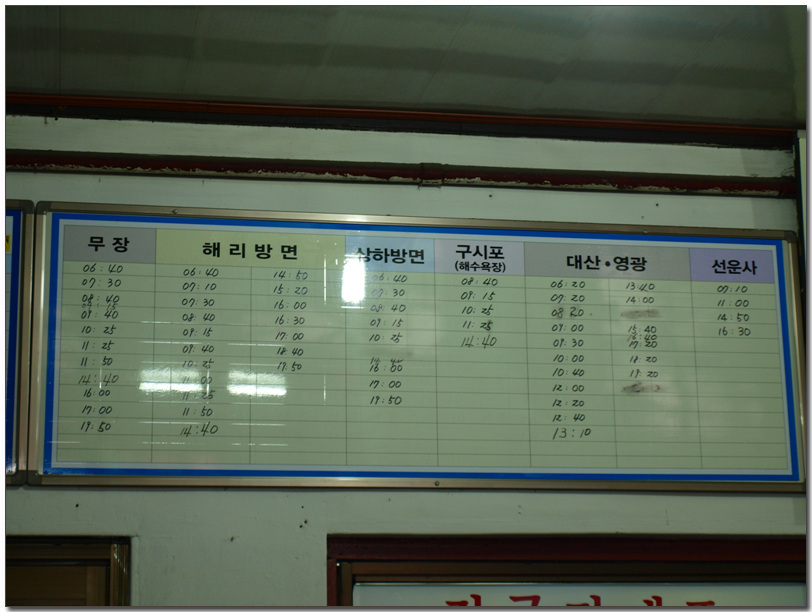 무 장
06:40
07:30
08:40
09:40
10:25
11:25
11:50
14:40
16:00
17:00
19:50
해 리 방 면
06:40
07:10
07:30
08:40
09:15
09:40
10:25
11:00
11:25
11:50
14:40
14:50
15:20
16:00
16:30
17:00
18:40
19:50
상하방면
06:40
07:30
08:40
09:15
10:25
16:00
17:00
19:50
구시포
(해수욕장)
08:40
09:15
10:25
11:25
14:40
대산·영광
06:20
07:20
08 20
09:00
09:30
10:00
10:40
12:00
12:20
12:40
13:10
13:40
14:00
15:40
16:40
17:20
18:20
19:20
선운사
07:10
11:00
14:50
16:30